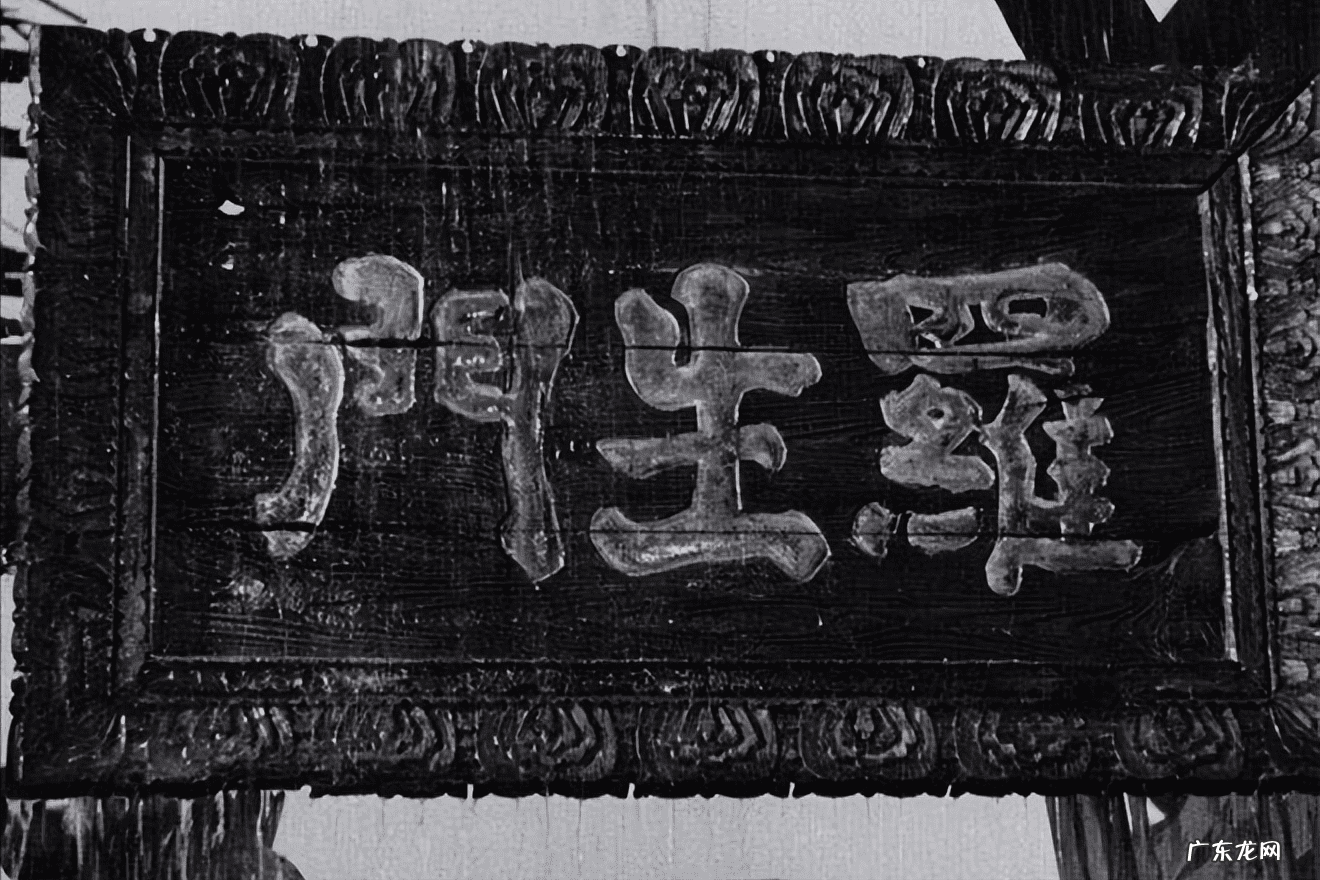 羅生門
广东龙网